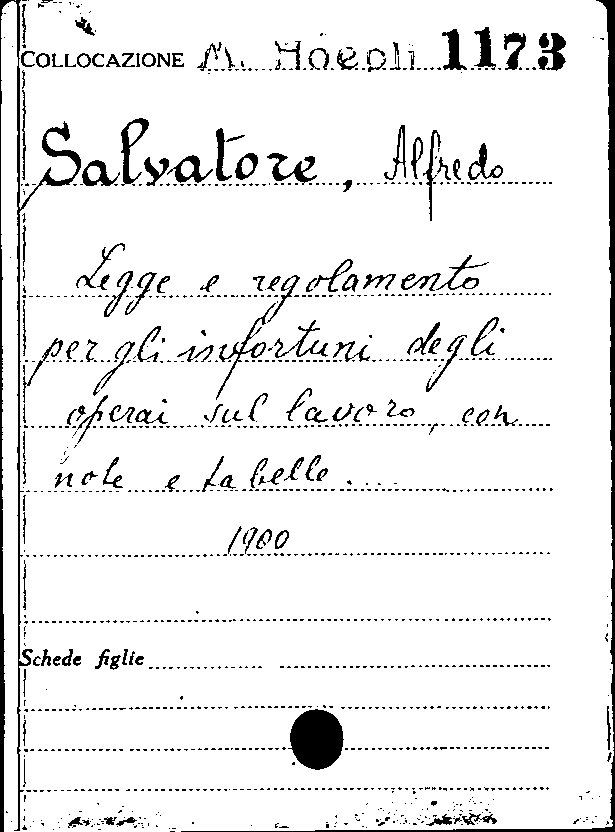 COLLOCAZIONE M. Hoepli 1173
Salvatore, Alfredo
Legge e regolamento
per gli infortuni degli
operai sul lavoro, con
note e tabelle....
1900
Schede figlie